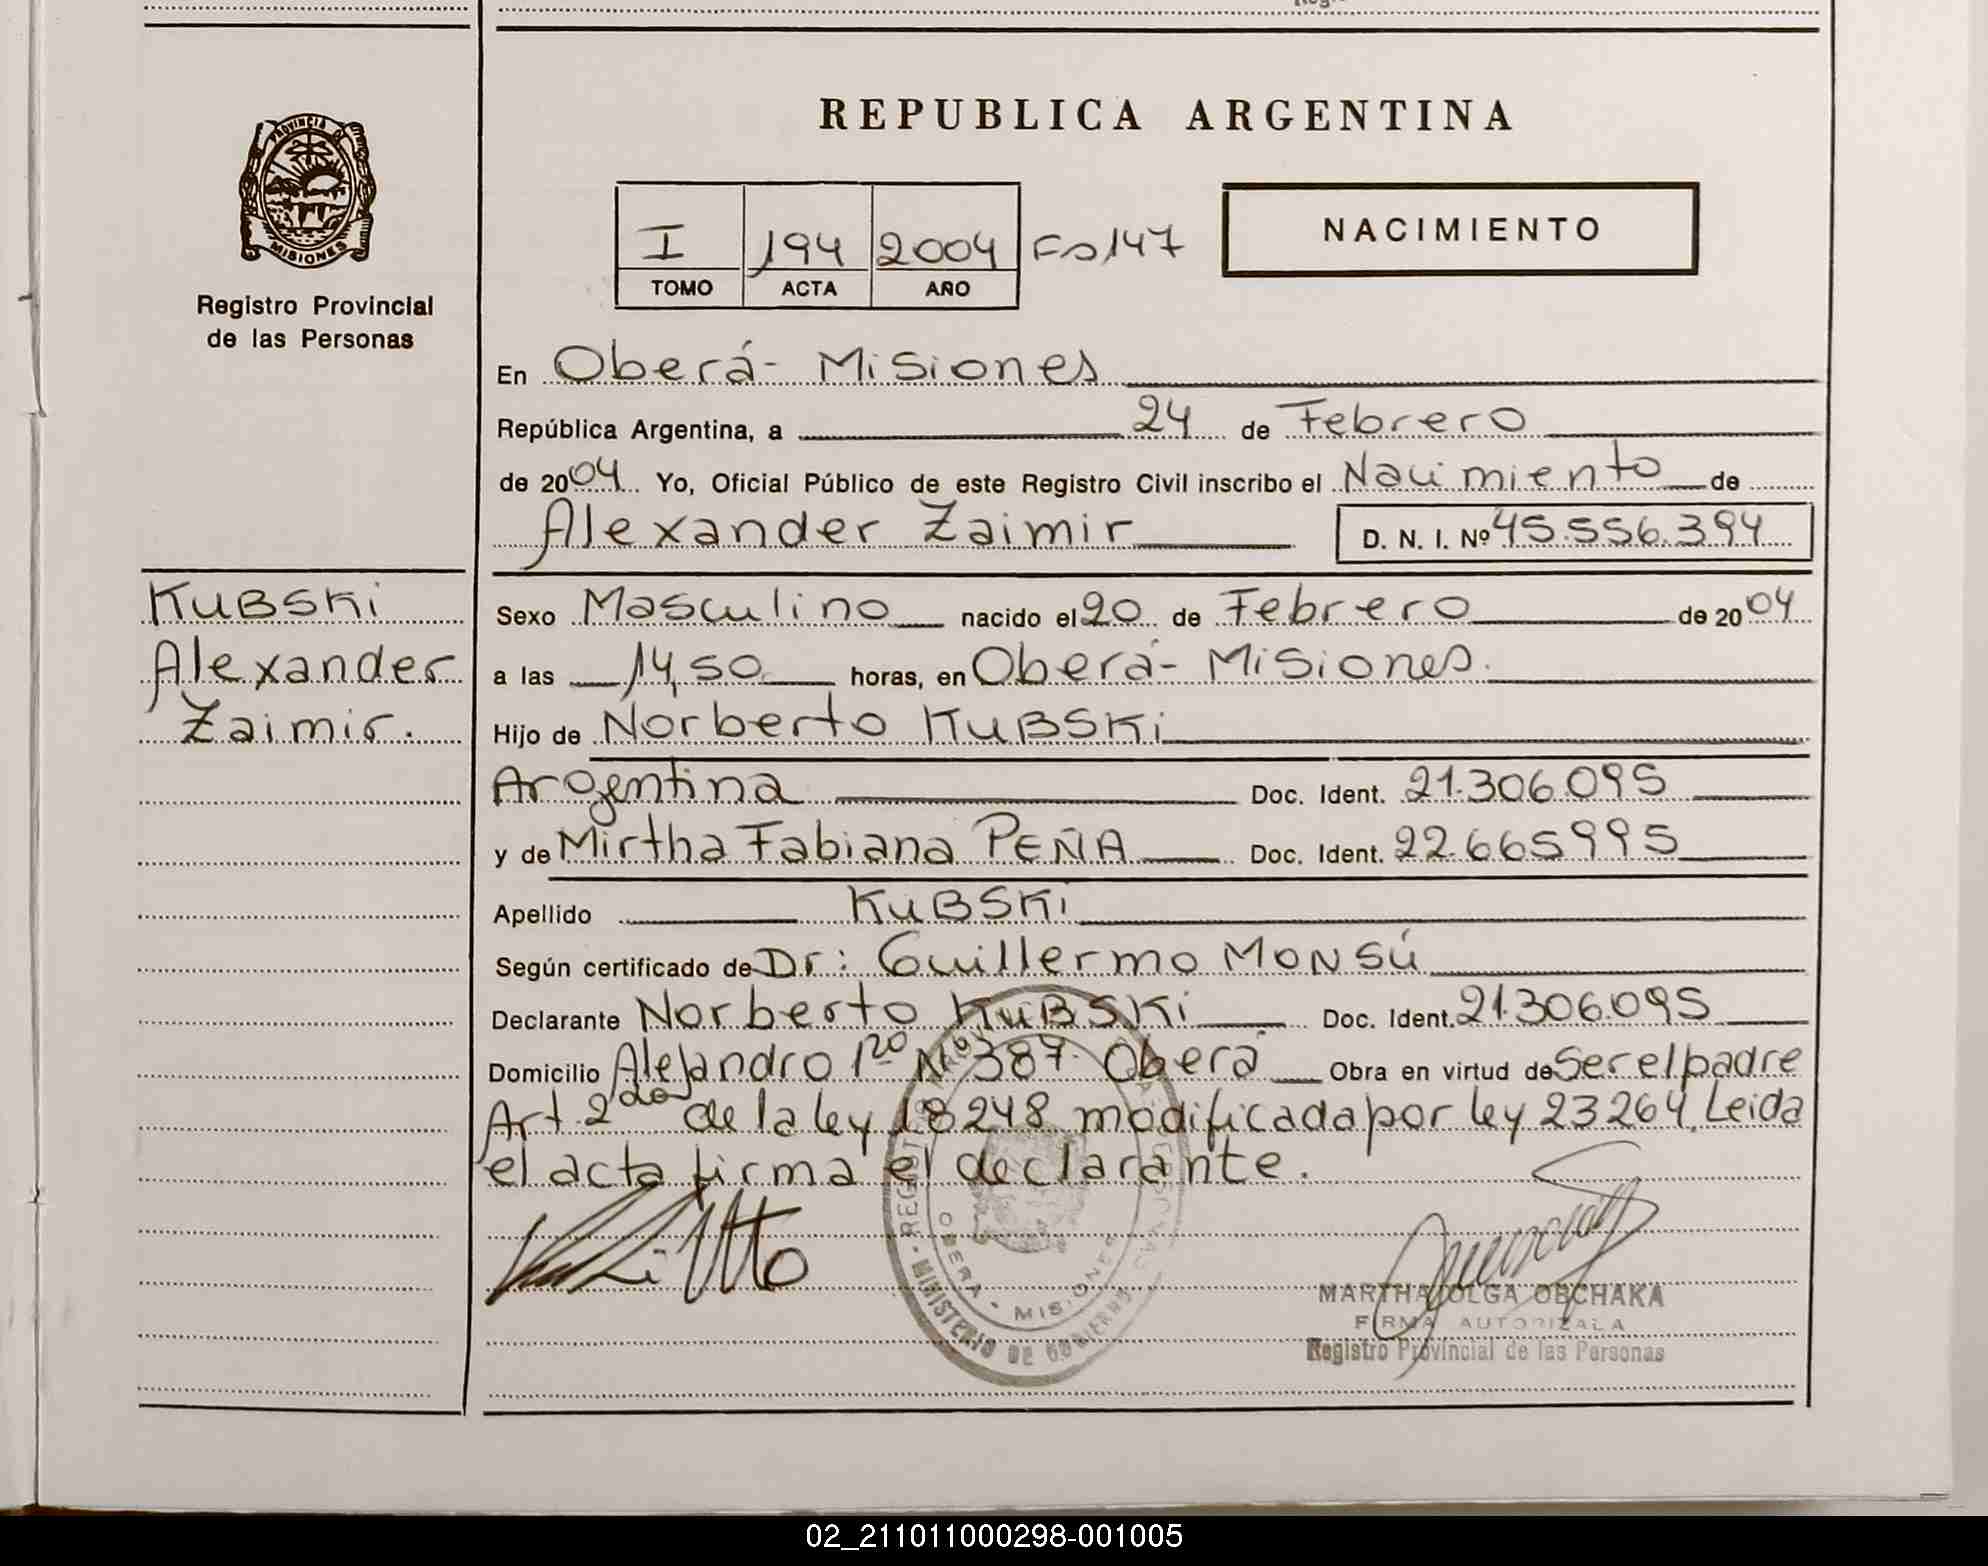 REPUBLICA ARGENTINA
PROVINCIA DE
MISIONES
Registro Provincial
de las Personas
I 194 2004 Fo 147
TOMO ACTA AÑO
NACIMIENTO
En Oberá - Misiones
República Argentina, a 24 de Febrero
de 2004 Yo, Oficial Público de este Registro Civil inscribo el Nacimiento de
Alexander Zaimir D. N. I. Nº 45.556.394
Kubski
Alexander
Zaimir.
Sexo Masculino nacido el 20 de Febrero de 2004
a las 14,50 horas, en Oberá - Misiones.
Hijo de Norberto KUBSKi
Argentina Doc. Ident. 21.306.095
y de Mirtha Fabiana PEÑA Doc. Ident. 22.665995
Apellido KUBSKi
Según certificado de Dr: Guillermo MONSÚ
Declarante Norberto KUBSKi Doc. Ident. 21.306.095
Domicilio Alejandro 1ro Nº 387. Oberá Obra en virtud de Ser el padre
Art. 2do de la ley 18248 modificada por ley 23264. Leida
el acta firma el declarante.
OBERA - MISIONES
MINISTERIO DE GOBIERNO
MARTHA OLGA OBCHAKA
FIRMA AUTORIZADA
Registro Provincial de las Personas
02_211011000298-001005